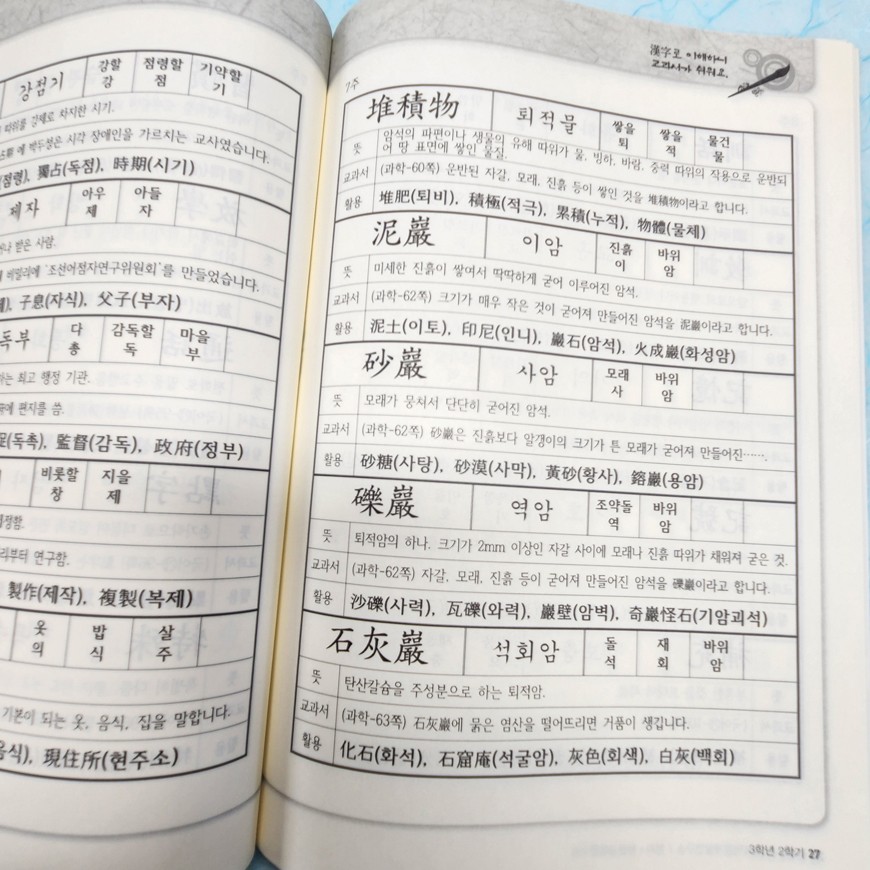 강점기 강할 점령할 기약할
강 점 기
따위를 강제로 차지한 시기.
에 박두성은 시각 장애인을 가르치는 교사였습니다.
(점령), 獨占(독점), 時期(시기)
제자 아우 아들
제 자
받은 사람.
비밀리에 '조선어점자연구위원회'를 만들었습니다.
子息(자식), 父子(부자)
독부 다 감독할 마을
총 독 부
하는 최고 행정 기관.
편지를 씀.
(독촉), 監督(감독), 政府(정부)
비롯할 지을
창 제
리부터 연구함.
製作(제작), 複製(복제)
옷 밥 살
의 식 주
기본이 되는 옷, 음식, 집을 말합니다.
음식), 現住所(현주소)
漢字로 이해하니
교과서가 쉬워요.
7주
堆積物 퇴적물 쌓을 쌓을 물건
퇴 적 물
뜻 암석의 파편이나 생물의 유해 따위가 물, 빙하, 바람, 중력 따위의 작용으로 운반되
어 땅 표면에 쌓인 물질.
교과서 (과학-60쪽) 운반된 자갈, 모래, 진흙 등이 쌓인 것을 堆積物이라고 합니다.
활용 堆肥(퇴비), 積極(적극), 累積(누적), 物體(물체)
泥巖 이암 진흙 바위
이 암
뜻 미세한 진흙이 쌓여서 딱딱하게 굳어 이루어진 암석.
교과서 (과학-62쪽) 크기가 매우 작은 것이 굳어져 만들어진 암석을 泥巖이라고 합니다.
활용 泥土(이토), 印尼(인니), 巖石(암석), 火成巖(화성암)
砂巖 사암 모래 바위
사 암
뜻 모래가 뭉쳐서 단단히 굳어진 암석.
교과서 (과학-62쪽) 砂巖은 진흙보다 알갱이의 크기가 큰 모래가 굳어져 만들어진…….
활용 砂糖(사탕), 砂漠(사막), 黃砂(황사), 鎔巖(용암)
礫巖 역암 조약돌 바위
역 암
뜻 퇴적암의 하나. 크기가 2mm 이상인 자갈 사이에 모래나 진흙 따위가 채워져 굳은 것.
교과서 (과학-62쪽) 자갈, 모래, 진흙 등이 굳어져 만들어진 암석을 礫巖이라고 합니다.
활용 沙礫(사력), 瓦礫(와력), 巖壁(암벽), 奇巖怪石(기암괴석)
石灰巖 석회암 돌 재 바위
석 회 암
뜻 탄산칼슘을 주성분으로 하는 퇴적암.
교과서 (과학-63쪽) 石灰巖에 묽은 염산을 떨어뜨리면 거품이 생깁니다.
활용 化石(화석), 石窟庵(석굴암), 灰色(회색), 白灰(백회)
3학년 2학기 27